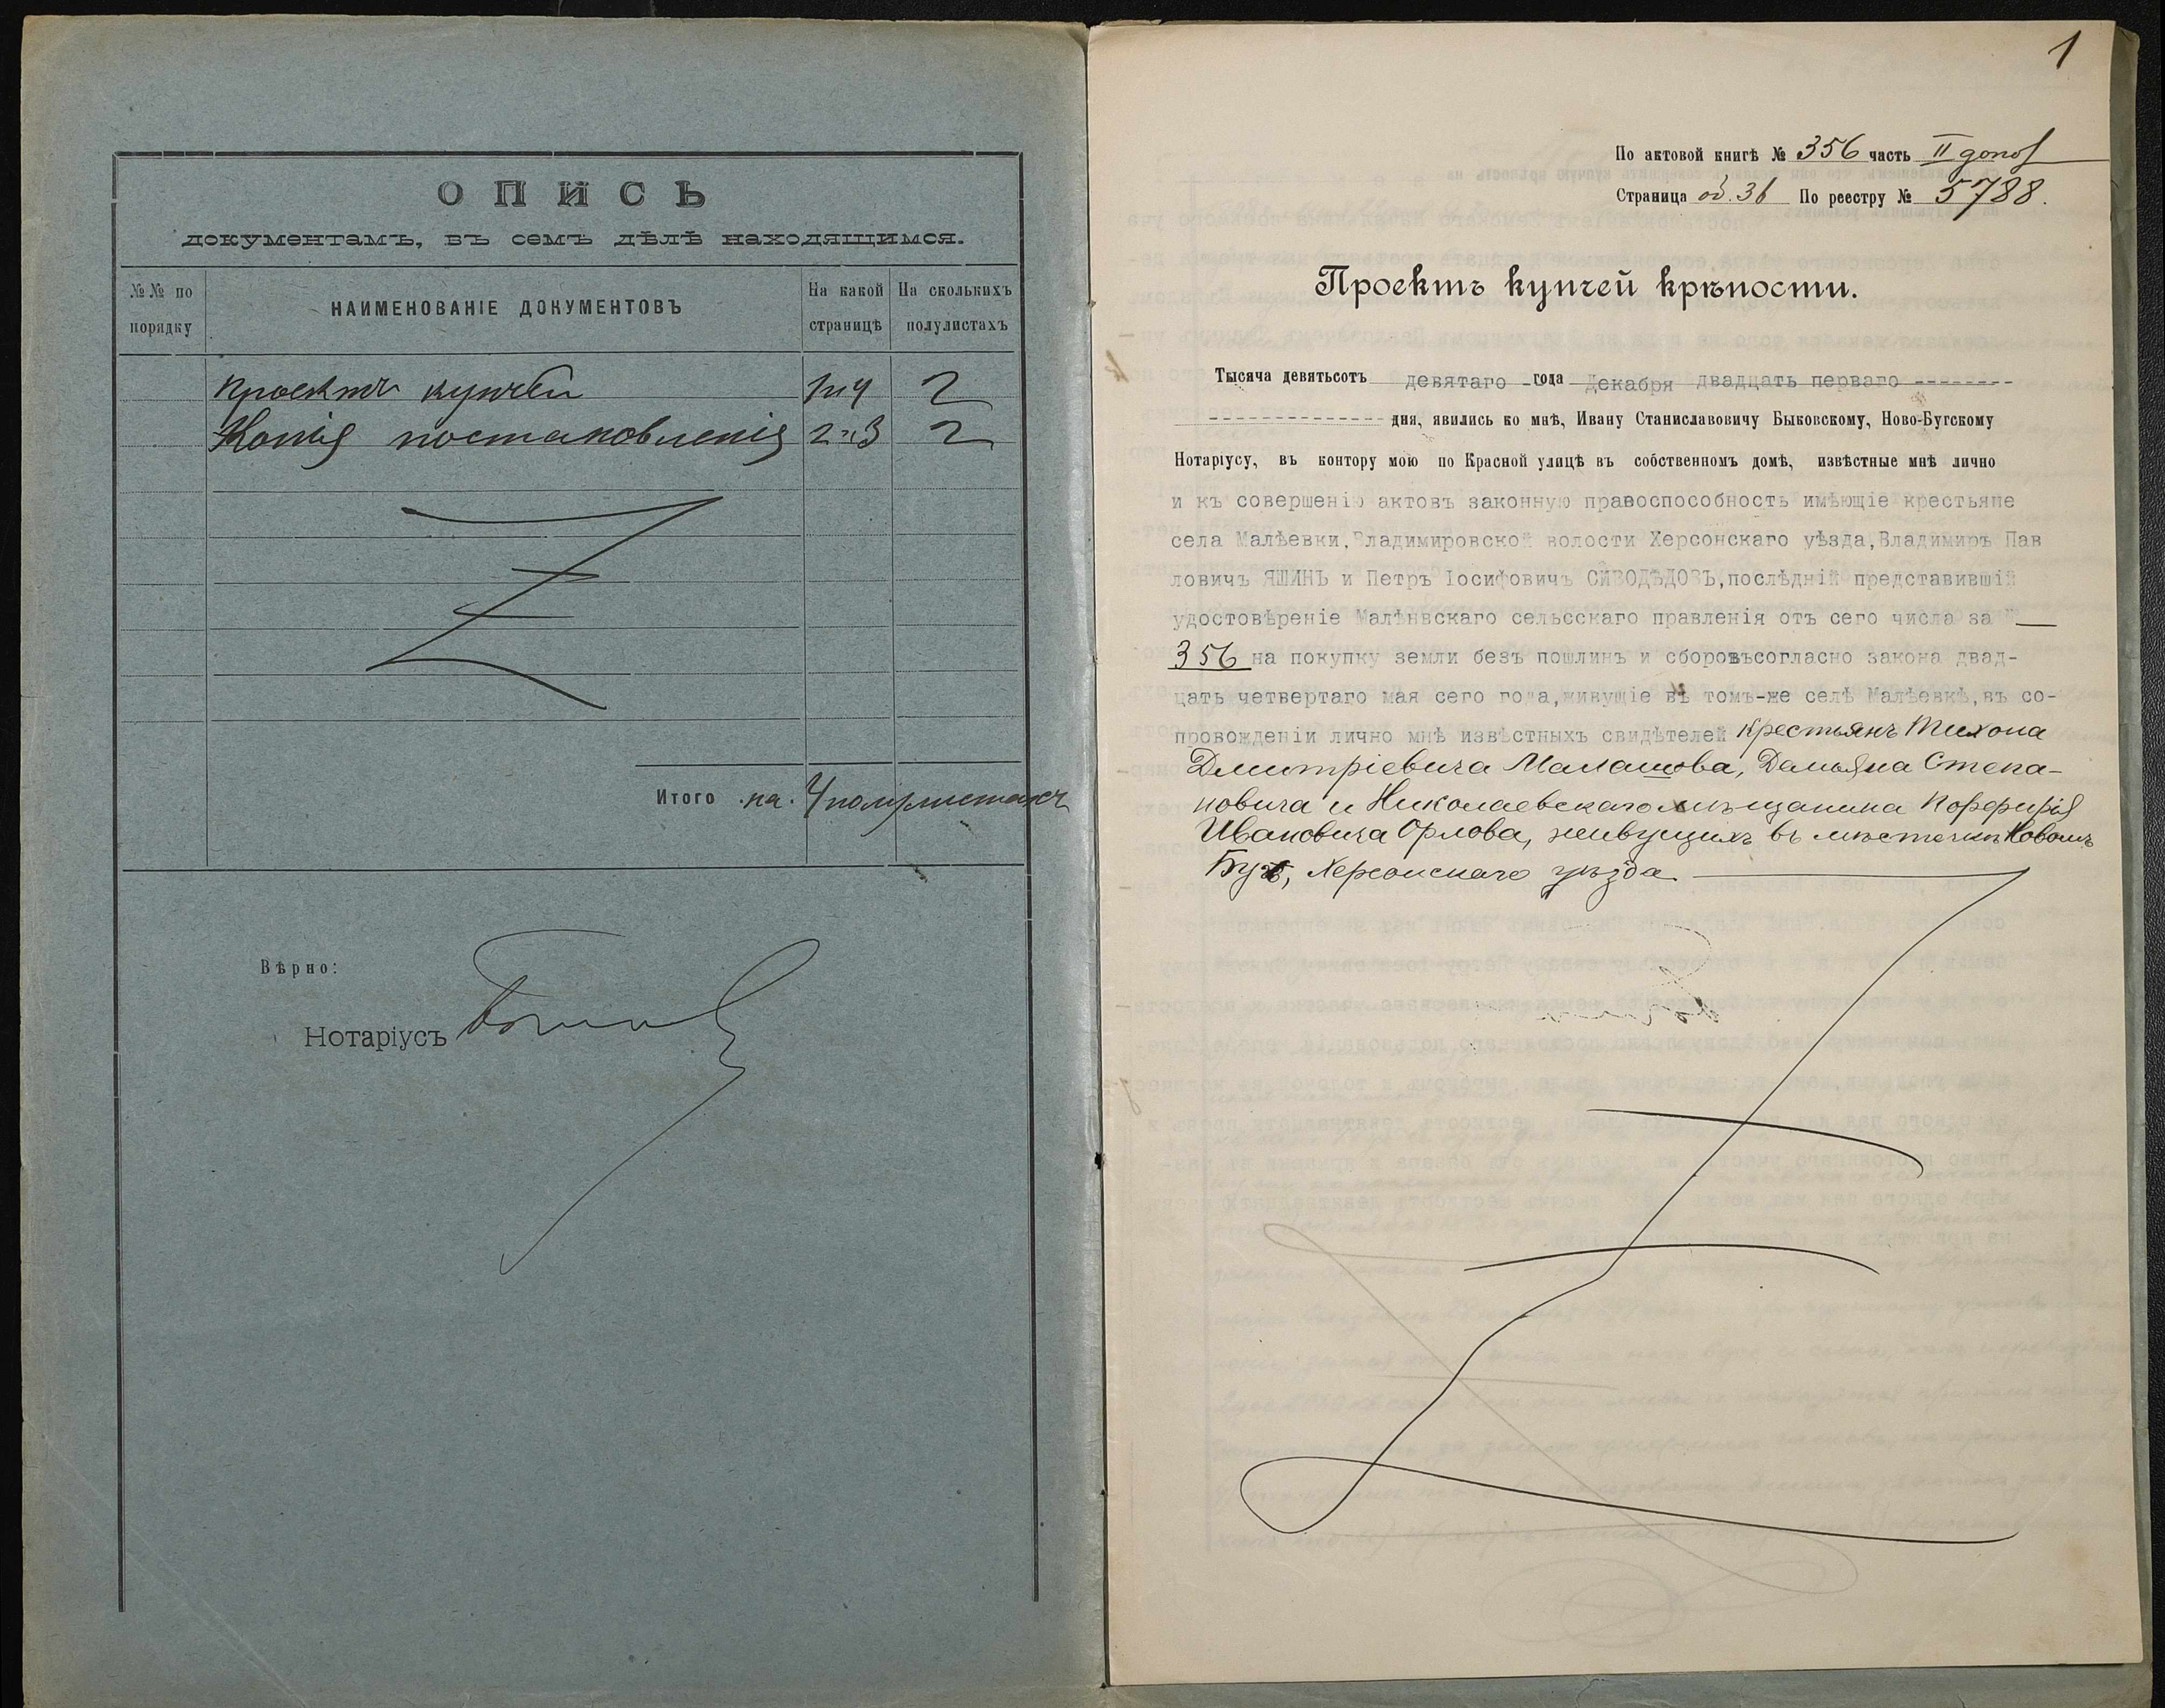 ОПИСЬ
документамъ, въ семъ дѣлѣ находящимся.
№№ по порядку
НАИМЕНОВАНІЕ ДОКУМЕНТОВЪ
На какой страницѣ
На сколькихъ полулистахъ
Проектъ купчей 1 и 4 2
Копія постановленія 2 и 3 2
Итого на 4 полулистахъ
Вѣрно:
Нотаріусъ
1
По актовой книгѣ № 356 часть II
Страница об. 36 По реестру № 5788.
Проектъ купчей крѣпости.
Тысяча девятьсотъ девятаго года Декабря двадцать перваго --------
---------------- дня, явились ко мнѣ, Ивану Станиславовичу Быковскому, Ново-Бугскому
Нотаріусу, въ контору мою по Красной улицѣ въ собственномъ домѣ, извѣстные мнѣ лично
и къ совершенію актовъ законную правоспособность имѣющіе крестьяне
села Малѣевки,Владимировской волости Херсонскаго уѣзда,Владимиръ Пав
ловичъ ЯШИНЪ и Петръ Іосифовичъ СИВОДѢДОВЪ,послѣдній представившій
удостовѣреніе Малѣевскаго сельсскаго правленія отъ сего числа за №
356 на покупку земли безъ пошлинъ и сборовъсогласно закона двад-
цать четвертаго мая сего года,живущіе въ томъ-же селѣ Малѣевкѣ,въ со-
провожденіи лично мнѣ извѣстныхъ свидѣтелей крестьянъ Тихона
Дмитріевича Малашова, Демьяна Степа-
новича и Николаевскаго мѣщанина Порфирія
Ивановича Орлова, живущихъ въ мѣстечкѣ Новомъ
Бугѣ, Херсонскаго уѣзда